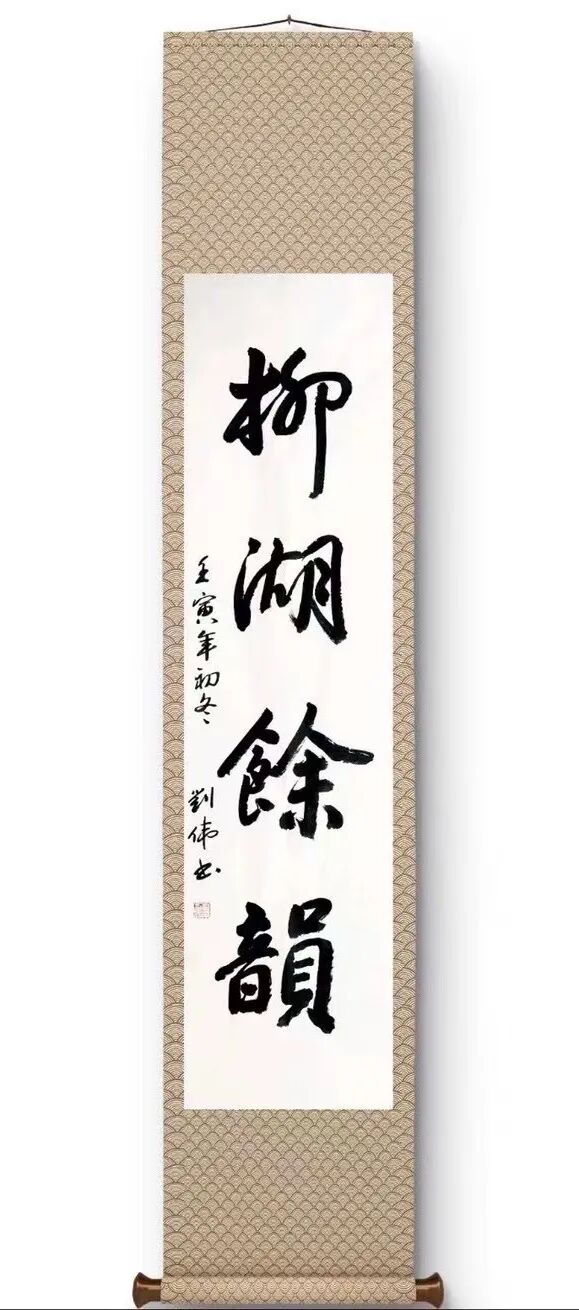 柳湖餘韻
壬寅年初冬
劉偉书